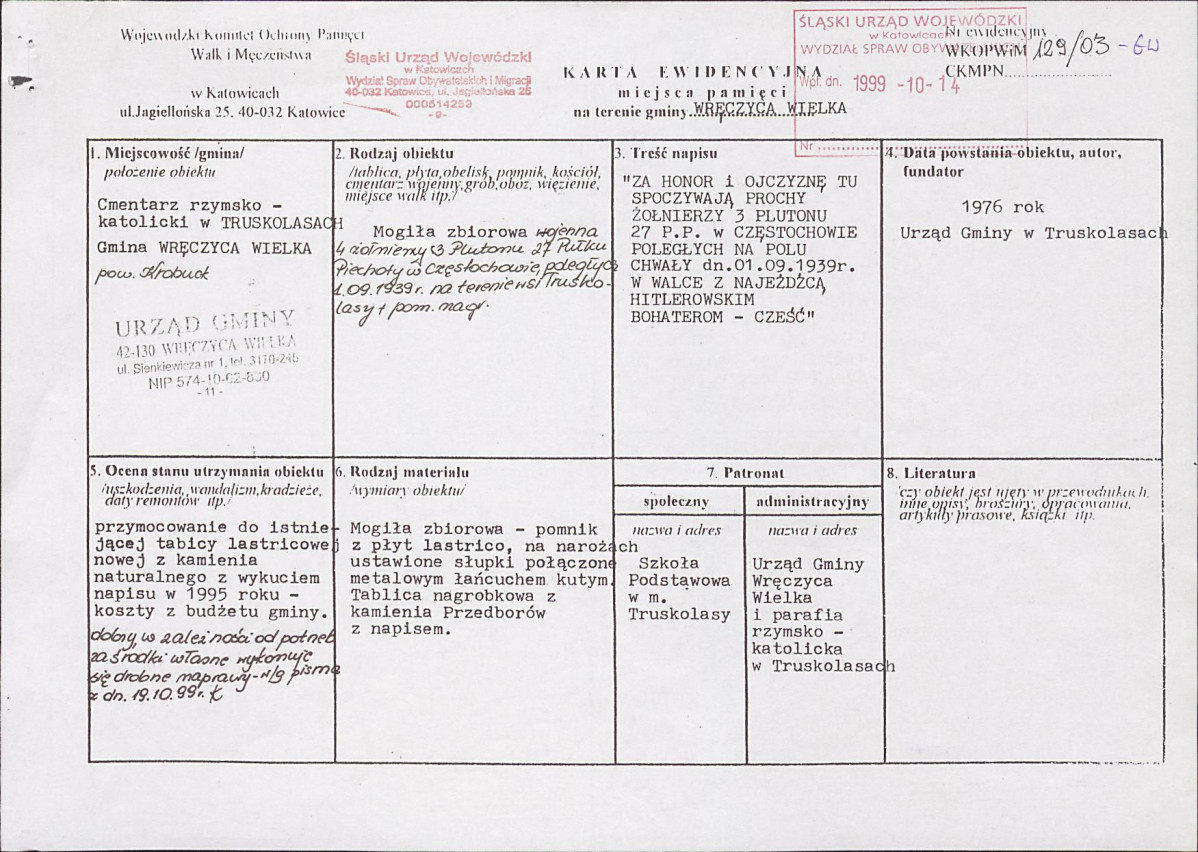 Wojewódzki Komitet Ochrony Pamięci
Walk i Męczeństwa
w Katowicach
ul.Jagiellońska 25, 40-032 Katowice
Śląski Urząd Wojewódzki
w Katowicach
Wydział Spraw Obywatelskich i Migracji
40-032 Katowice, ul. Jagiellońska 25
000514259
-9-
KARTA EWIDENCYJNA
miejsca pamięci
na terenie gminy WRĘCZYCA WIELKA
ŚLĄSKI URZĄD WOJEWÓDZKI
w Katowicach
WYDZIAŁ SPRAW
Wpł. dn. 1999 -10- 14
Nr
Nr ewidencyjny
WKOPWiM 129/03 - GW
CKMPN
1. Miejscowość /gmina/
położenie obiektu
Cmentarz rzymsko -
katolicki w TRUSKOLASACH
Gmina WRĘCZYCA WIELKA
pow. Kłobuck
URZĄD GMINY
42-130 WRĘCZYCA WIELKA
ul. Sienkiewicza nr 1, tel. 3170-245
NIP 574-10-62-830
- 11 -
2. Rodzaj obiektu
/tablica, płyta,obelisk, pomnik, kościół,
cmentarz wojenny,grób,obóz, więzienie,
miejsce walk itp./
Mogiła zbiorowa wojenna
4 żołnierzy 3 Plutonu 27 Pułku
Piechoty w Częstochowie, poległych
1.09.1939r. na terenie wsi Trusko-
lasy + pom. nagr.
3. Treść napisu
"ZA HONOR i OJCZYZNĘ TU
SPOCZYWAJĄ PROCHY
ŻOŁNIERZY 3 PLUTONU
27 P.P. w CZĘSTOCHOWIE
POLEGŁYCH NA POLU
CHWAŁY dn.01.09.1939r.
W WALCE Z NAJEŹDŹCĄ
HITLEROWSKIM
BOHATEROM - CZEŚĆ"
4. Data powstania obiektu, autor,
fundator
1976 rok
Urząd Gminy w Truskolasach
5. Ocena stanu utrzymania obiektu
/uszkodzenia, wandalizm,kradzieże,
daty remontów itp./
przymocowanie do istnie-
jącej tabicy lastricowej
nowej z kamienia
naturalnego z wykuciem
napisu w 1995 roku -
koszty z budżetu gminy.
dobry, w zależności od potrzeb
za środki własne wykonuje
się drobne naprawy - w/g pisma
z dn. 19.10.99r.
6. Rodzaj materiału
/wymiary obiektu/
Mogiła zbiorowa - pomnik
z płyt lastrico, na narożach
ustawione słupki połączone
metalowym łańcuchem kutym.
Tablica nagrobkowa z
kamienia Przedborów
z napisem.
7. Patronat
społeczny
nazwa i adres
Szkoła
Podstawowa
w m.
Truskolasy
administracyjny
nazwa i adres
Urząd Gminy
Wręczyca
Wielka
i parafia
rzymsko -
katolicka
w Truskolasach
8. Literatura
/czy obiekt jest ujęty w przewodnikach,
inne opisy, broszury, opracowania,
artykuły prasowe, książki itp.